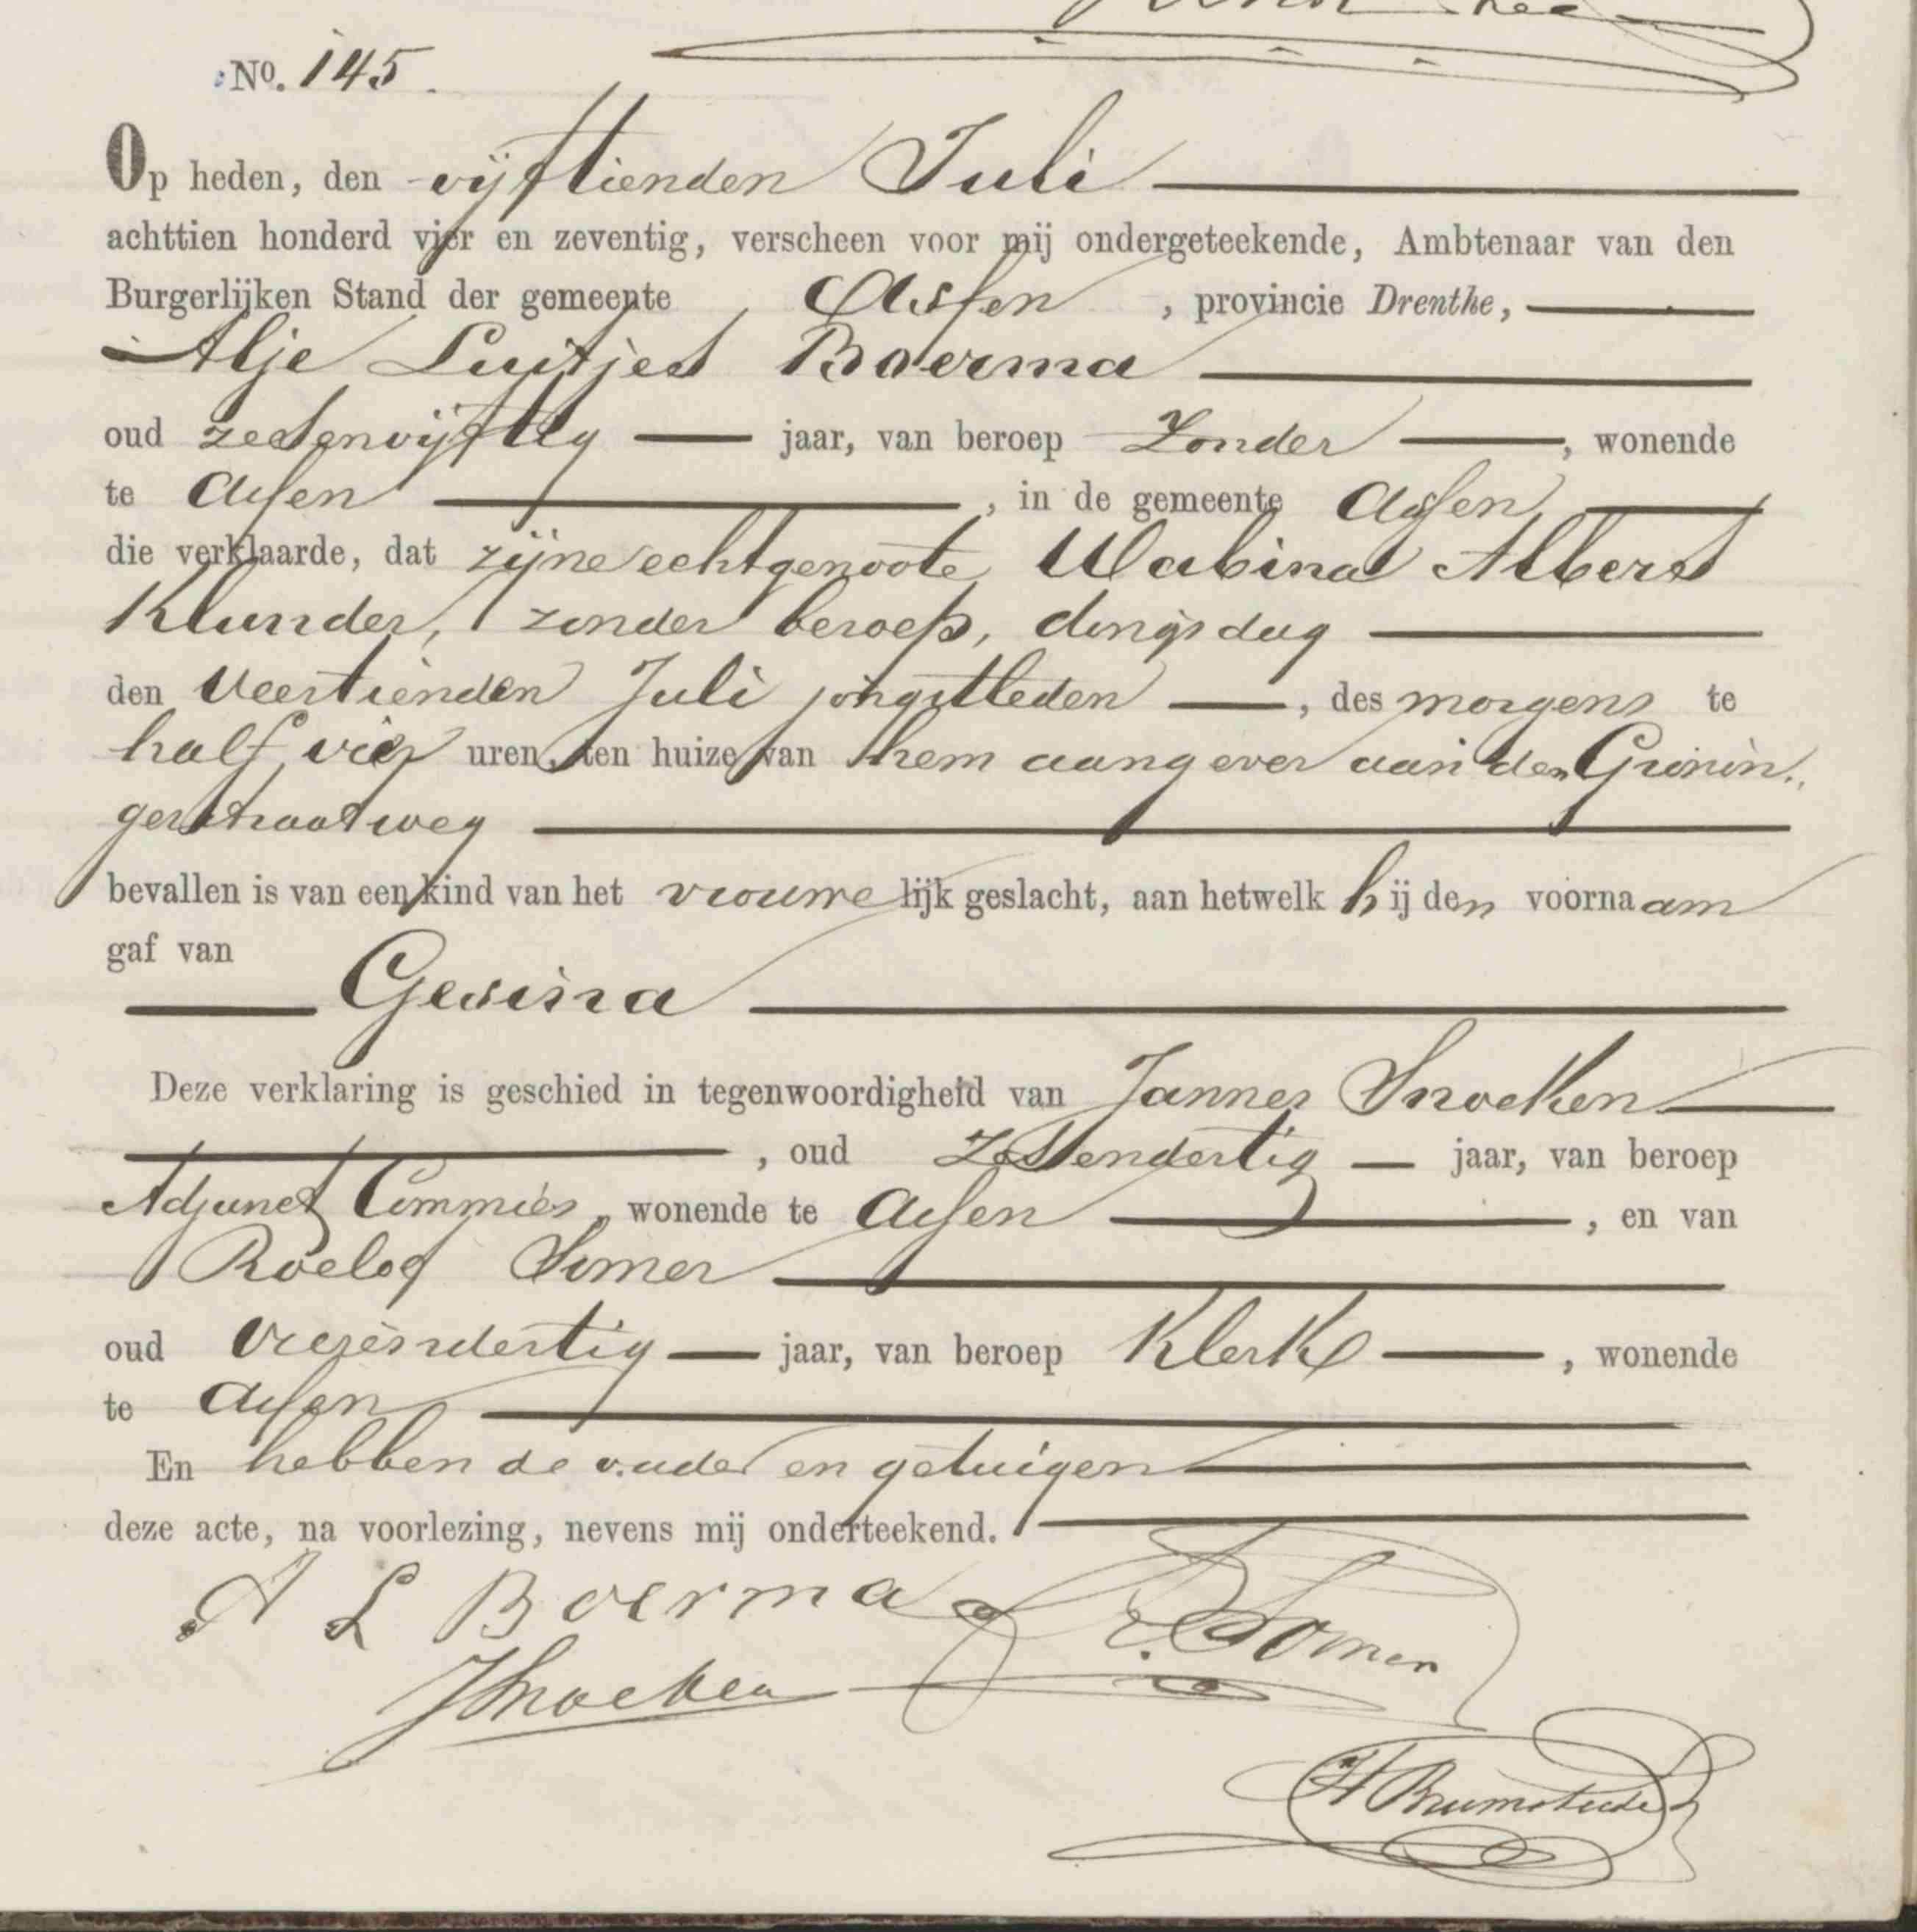 No. 145.
Op heden, den vijftienden Juli
achttien honderd vier en zeventig, verscheen voor mij ondergeteekende, Ambtenaar van den
Burgerlijken Stand der gemeente Assen, provincie Drenthe,
Alje Luitjes Boerma
oud zesenvijftig jaar, van beroep Zonder, wonende
te Assen, in de gemeente Assen
die verklaarde, dat zijne echtgenoote Wabina Alberts
Klunder, zonder beroep, dingsdag
den Veertienden Juli jongstleden, des morgens te
half vier uren, ten huize van hem aangever aan den Gronin-
gerstraatweg
bevallen is van een kind van het vrouwelijk geslacht, aan hetwelk hij den voornaam
gaf van
Gesina
Deze verklaring is geschied in tegenwoordigheid van Jannes Snoeken
, oud Zessendertig jaar, van beroep
Adjunct Commies, wonende te Assen, en van
Roelof Somer
oud Vierendertig jaar, van beroep Klerk, wonende
te Assen
En hebben de vader en getuigen
deze acte, na voorlezing, nevens mij onderteekend.
A L Boerma
R. Somer
JSnoeken